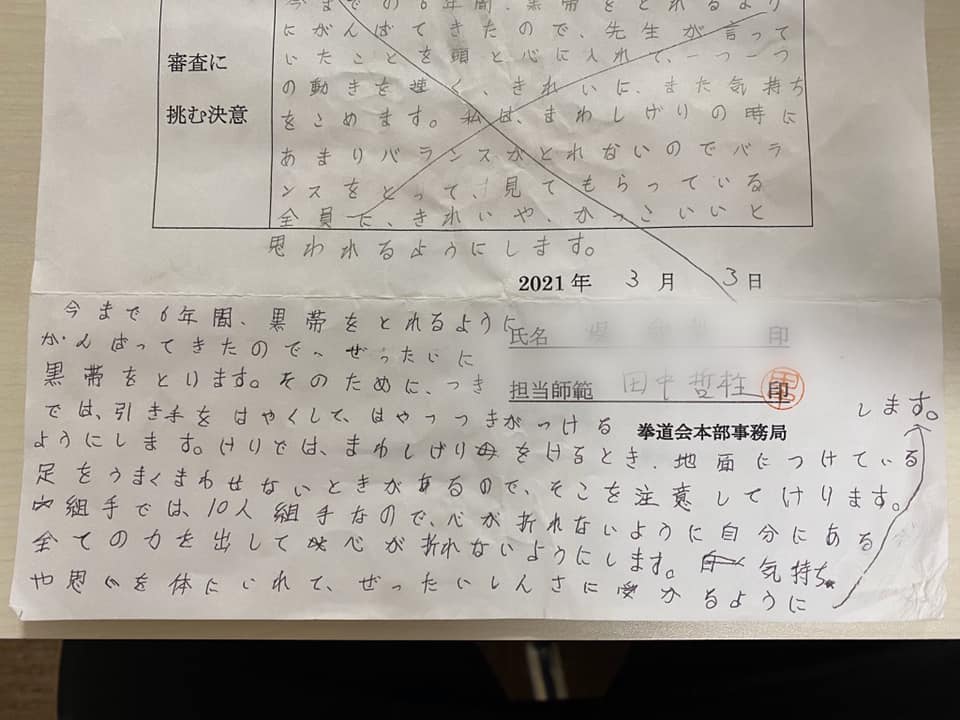 今までの6年間、黒帯をとれるよう
にがんばてきたので、先生が言って
いたことを頭と心に入れて、一つ一つ
の動きを速く、きれいに、また気持ち
をこめます。私は、まわしげりの時に
あまりバランスがとれないのでバラ
ンスをとって、見てもらっている
全員に、きれいや、かっこいいと
思われるようにします。
審査に
挑む決意
2021年 3月 3日
氏名 印
担当師範 田中哲 印
拳道会本部事務局
今まで6年間、黒帯をとれるように
がんばってきたので、ぜったいに
黒帯をとります。そのために、つき
では、引き手をはやくして、はやつつきがつける
ようにします。けりでは、まわしげりをけるとき、地面につけている
足をうまくまわせないときがあるので、そこを注意してけります。
組手では、10人組手なので、心が折れないように自分にある
全ての力を出して心が折れないようにします。気持ち
や思いを体にいれて、ぜったいしんさにかるように
します。